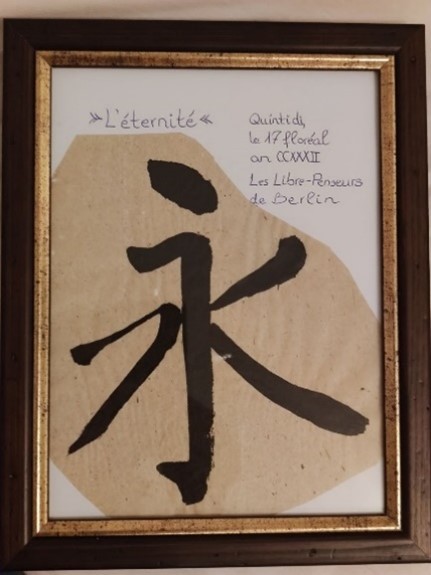 »L'éternité«
Quintidi,
le 17 floréal
an CCXXXII
Les Libre-Penseurs
de Berlin
永